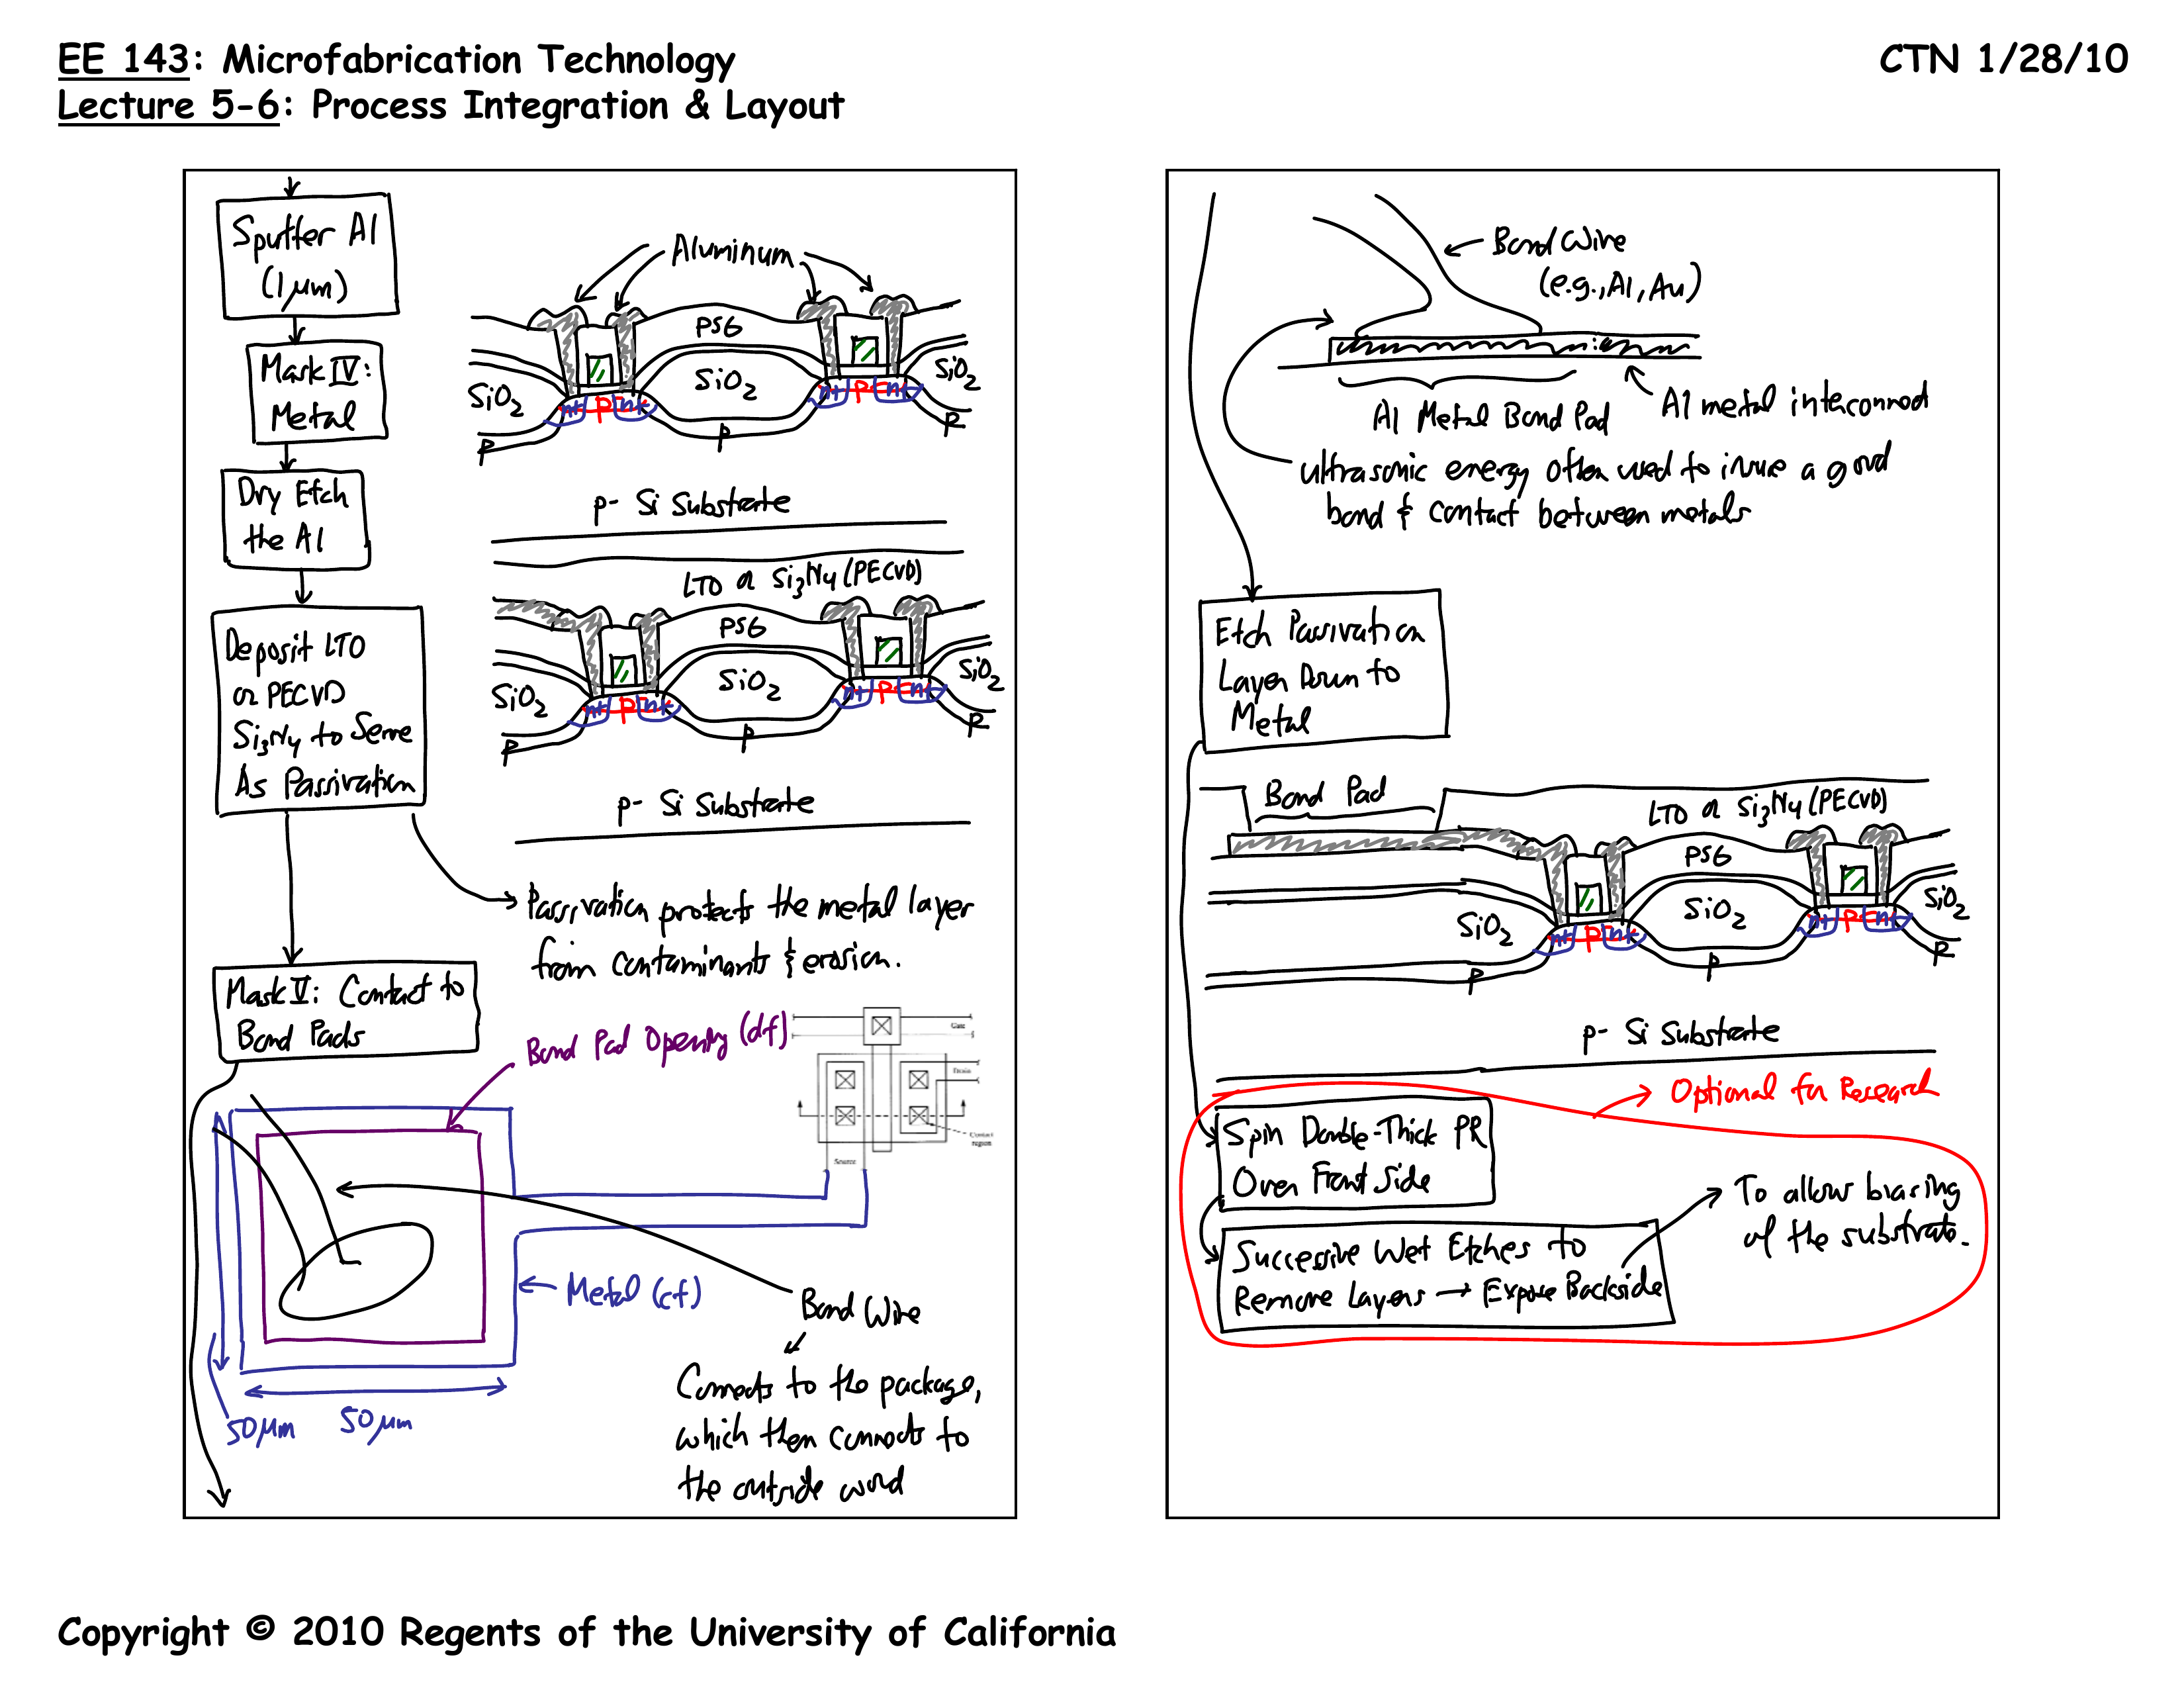 EE 143: Microfabrication Technology
Lecture 5-6: Process Integration & Layout
CTN 1/28/10
Sputter Al
(1μm)
Mask IV:
Metal
Dry Etch
the Al
Deposit LTO
or PECVD
Si3N4 to Serve
As Passivation
Mask V: Contact to
Bond Pads
Aluminum
PSG
SiO2
SiO2
SiO2
n+ p n+
n+ p n+
p
p
p
p- Si Substrate
LTO or Si3N4 (PECVD)
PSG
SiO2
SiO2
SiO2
n+ p n+
n+ p n+
p
p
p
p- Si Substrate
Passivation protects the metal layer
from contaminants & erosion.
Bond Pad Opening (df)
Gate
Drain
Contact
region
Source
Metal (cf)
50μm
50μm
Bond Wire
Connects to the package,
which then connects to
the outside world
Bond Wire
(e.g., Al, Au)
Al Metal Bond Pad
Al metal interconnect
ultrasonic energy often used to insure a good
bond & contact between metals
Etch Passivation
Layer Down to
Metal
Bond Pad
LTO or Si3N4 (PECVD)
PSG
SiO2
SiO2
SiO2
n+ p n+
n+ p n+
p
p
p
p- Si Substrate
Optional for Research
Spin Double-Thick PR
Over Front Side
Successive Wet Etches to
Remove Layers → Expose Backside
To allow biasing
of the substrate.
Copyright © 2010 Regents of the University of California